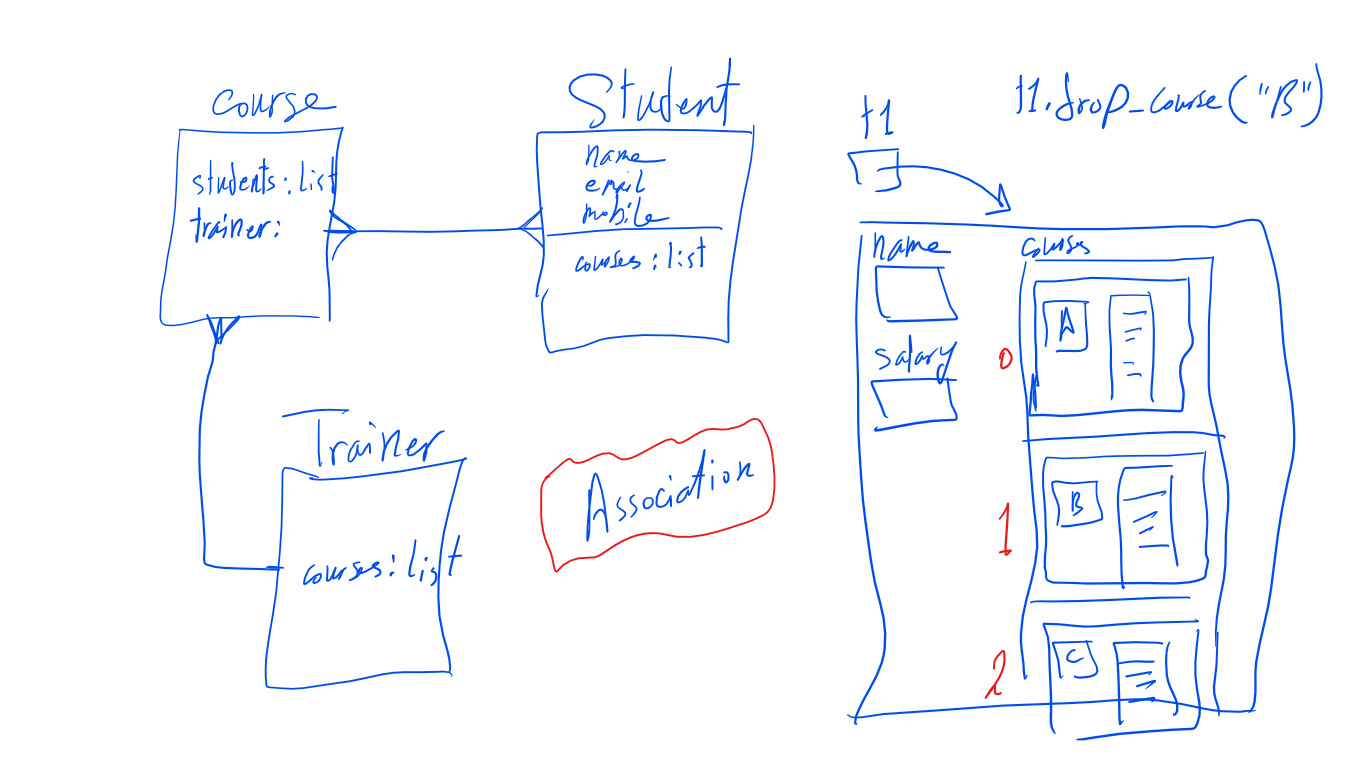 Course
students: list
trainer:
Student
name
email
mobile
courses: list
Trainer
courses: list
Association
t1
t1.drop_course("B")
name
salary
courses
0
A
1
B
2
C